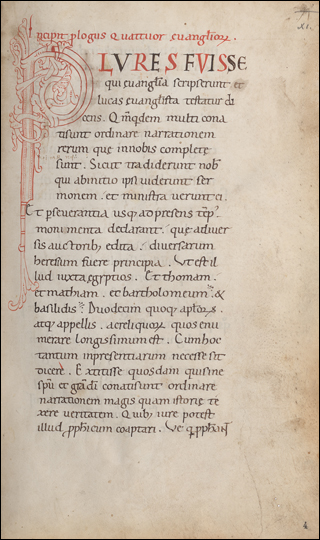 Incipit plogus Quattuor euangliorꝝ.
XI.
PLVRES FVISSE
qui euanglia scripserunt et
lucas euanglista testatur di
cens. Qmqdem multi cona
ti sunt ordinare narrationem
rerum que in nobis complete
sunt. Sicut tradiderunt nob
qui ab initio ipsi uiderunt ser
monem. et ministrauerunt ei.
Et pseuerantia usq ad presens temp
monumenta declarant. que a diuer
sis auctorib; edita. diuersarum
heresium fuere principia. Vt est il
lud iuxta egyptios. Et thomam.
et mathiam. et bartholomeum. &
basilidis. Duodecim quoq aptoꝝ.
atq; appellis. ac reliquorꝝ quos enu
merare longissimum est. Cum hoc
tantum in presentiarum necesse sit
dicere. Extitisse quosdam qui sine
spu et gra di conati sunt ordinare
narrationem magis quam istorie te
xere ueritatem. Quib; iure potest
illud ꝓphicum coaptari. Ve q ꝓphant
4